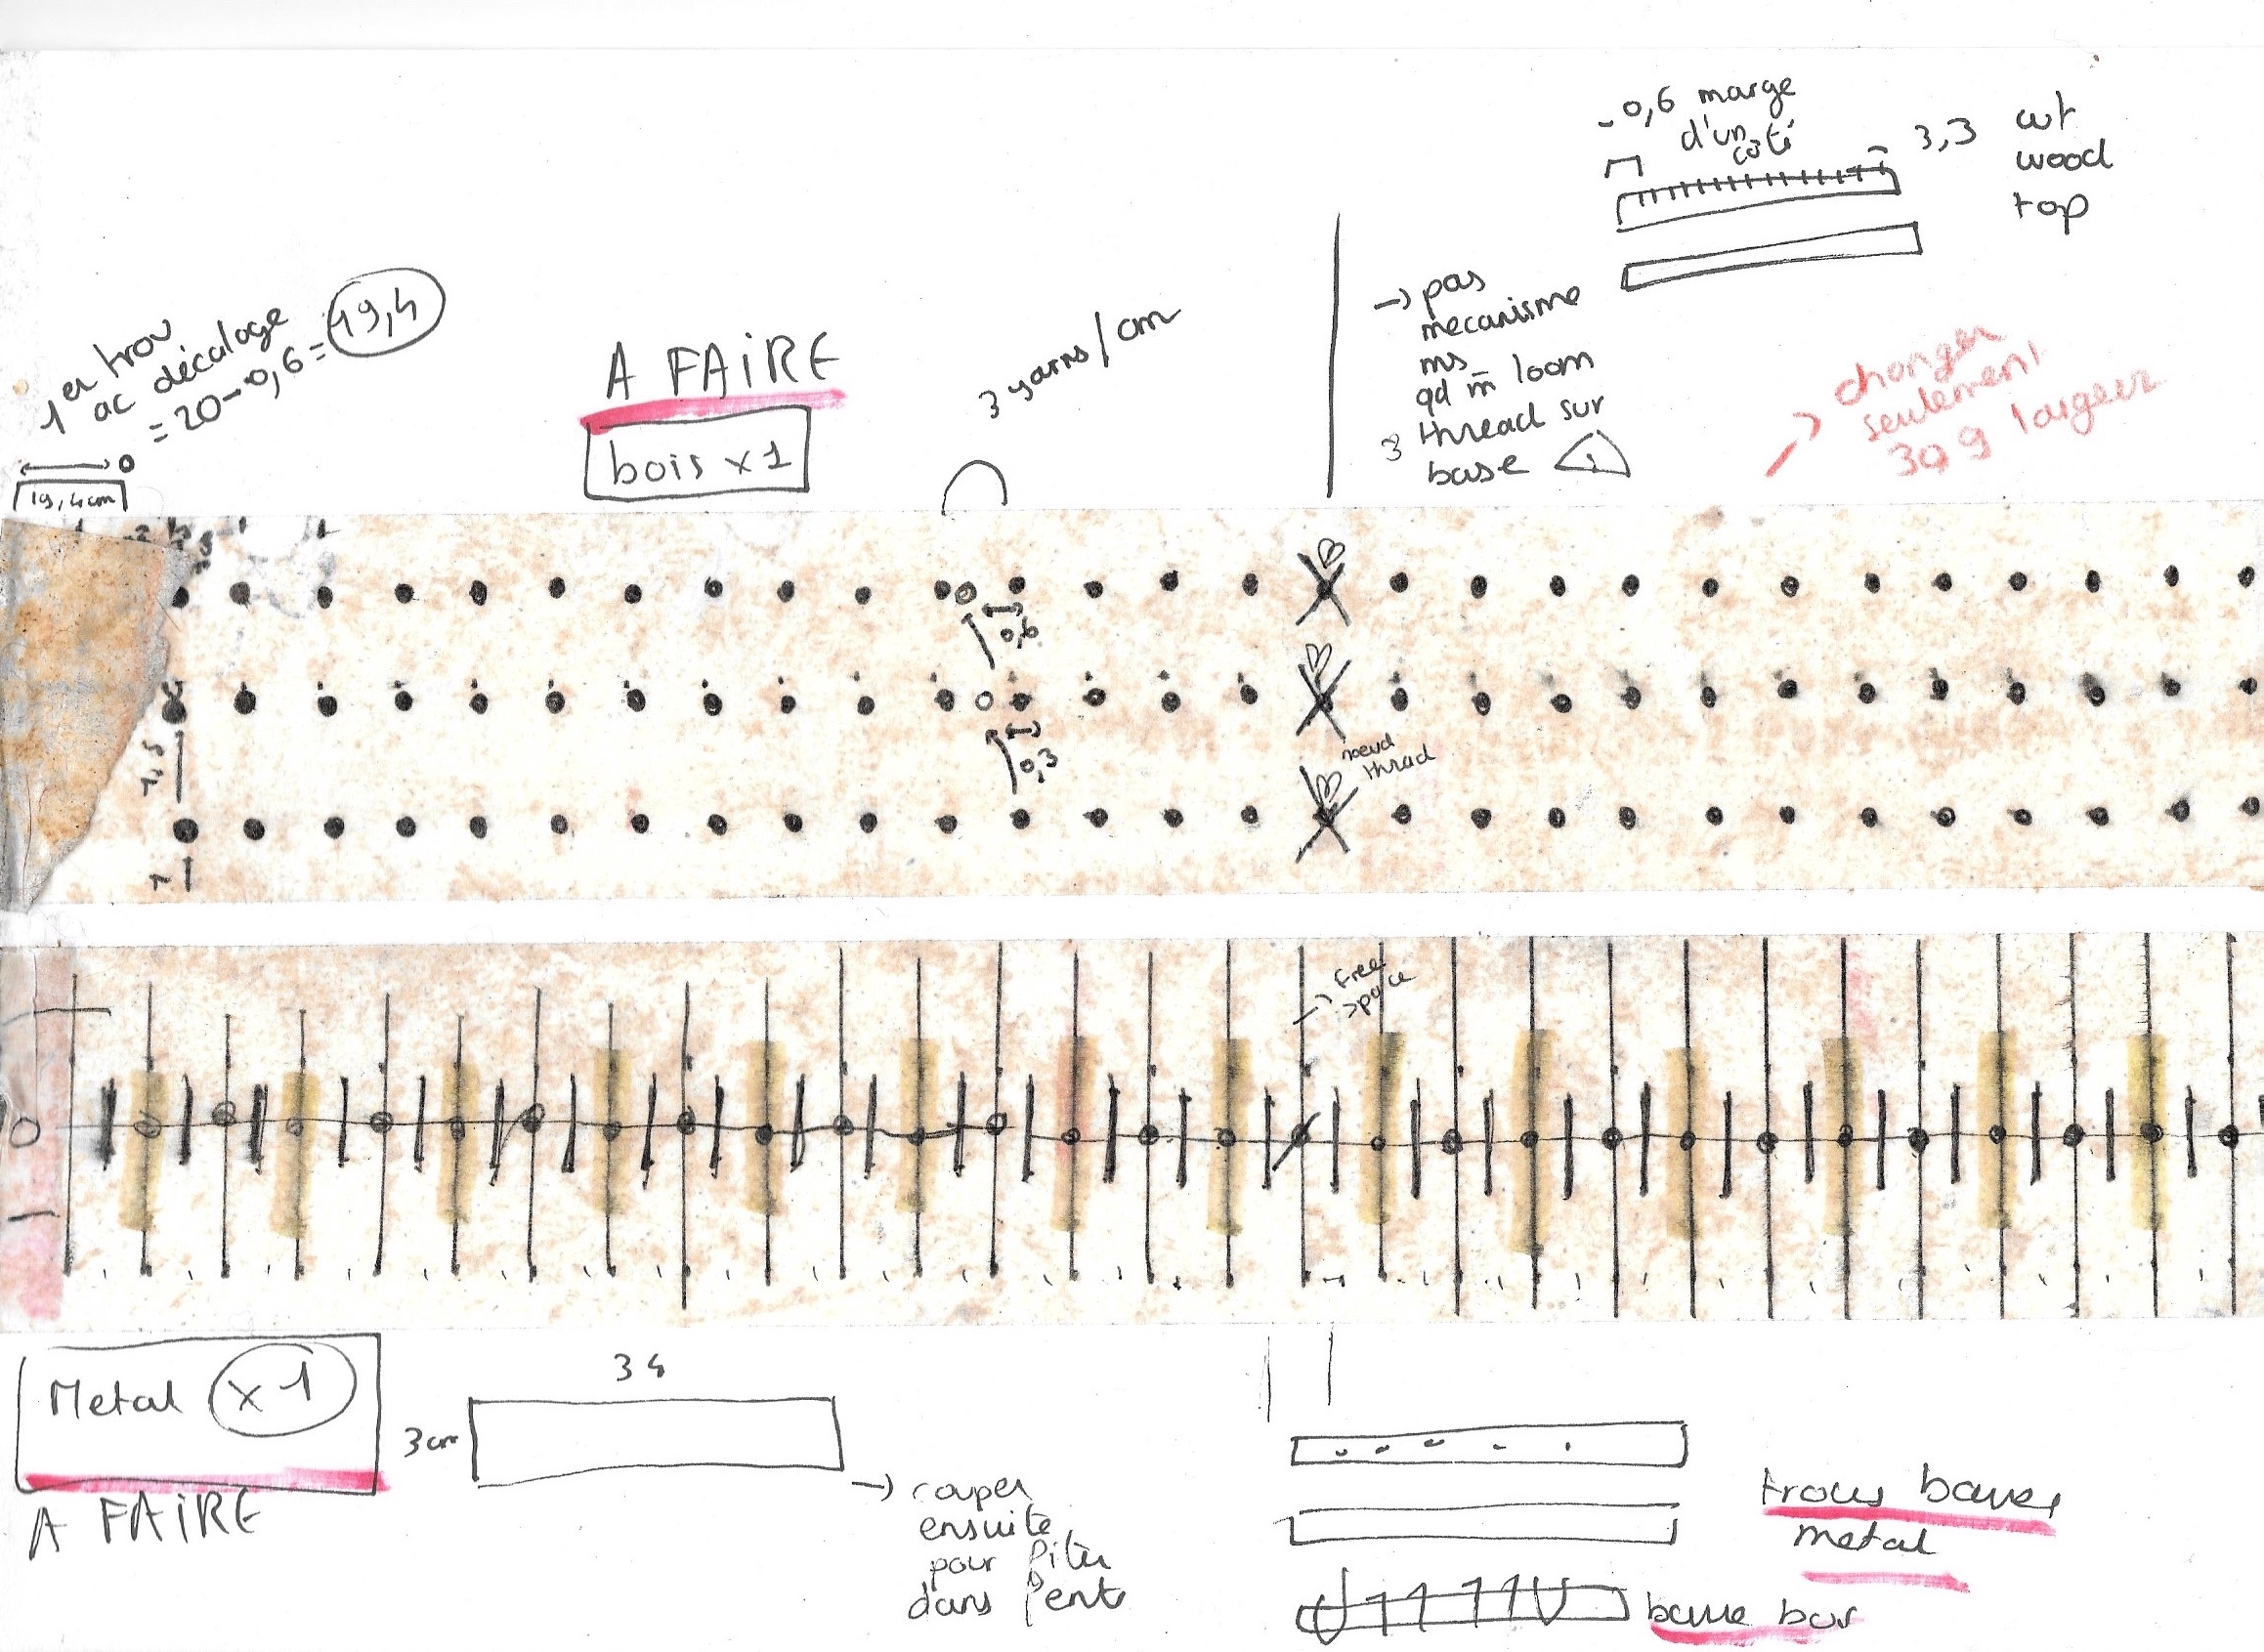 - 0,6 marge
d'un
coté
3,3
cut
wood
top
1er trou
ac décalage
= 20-0,6 = 19,4
19,4cm
A FAiRE
bois x1
3 yarns/cm
→ pas
mecanisme
ms
qd m̄ loom
thread sur
base
changer
seulement
largeur
0,6
0,3
noeud
thread
→ Free
space
Metal x1
A FAiRE
3cm
→ couper
ensuite
pour
dans
trous barres
metal
barre bas